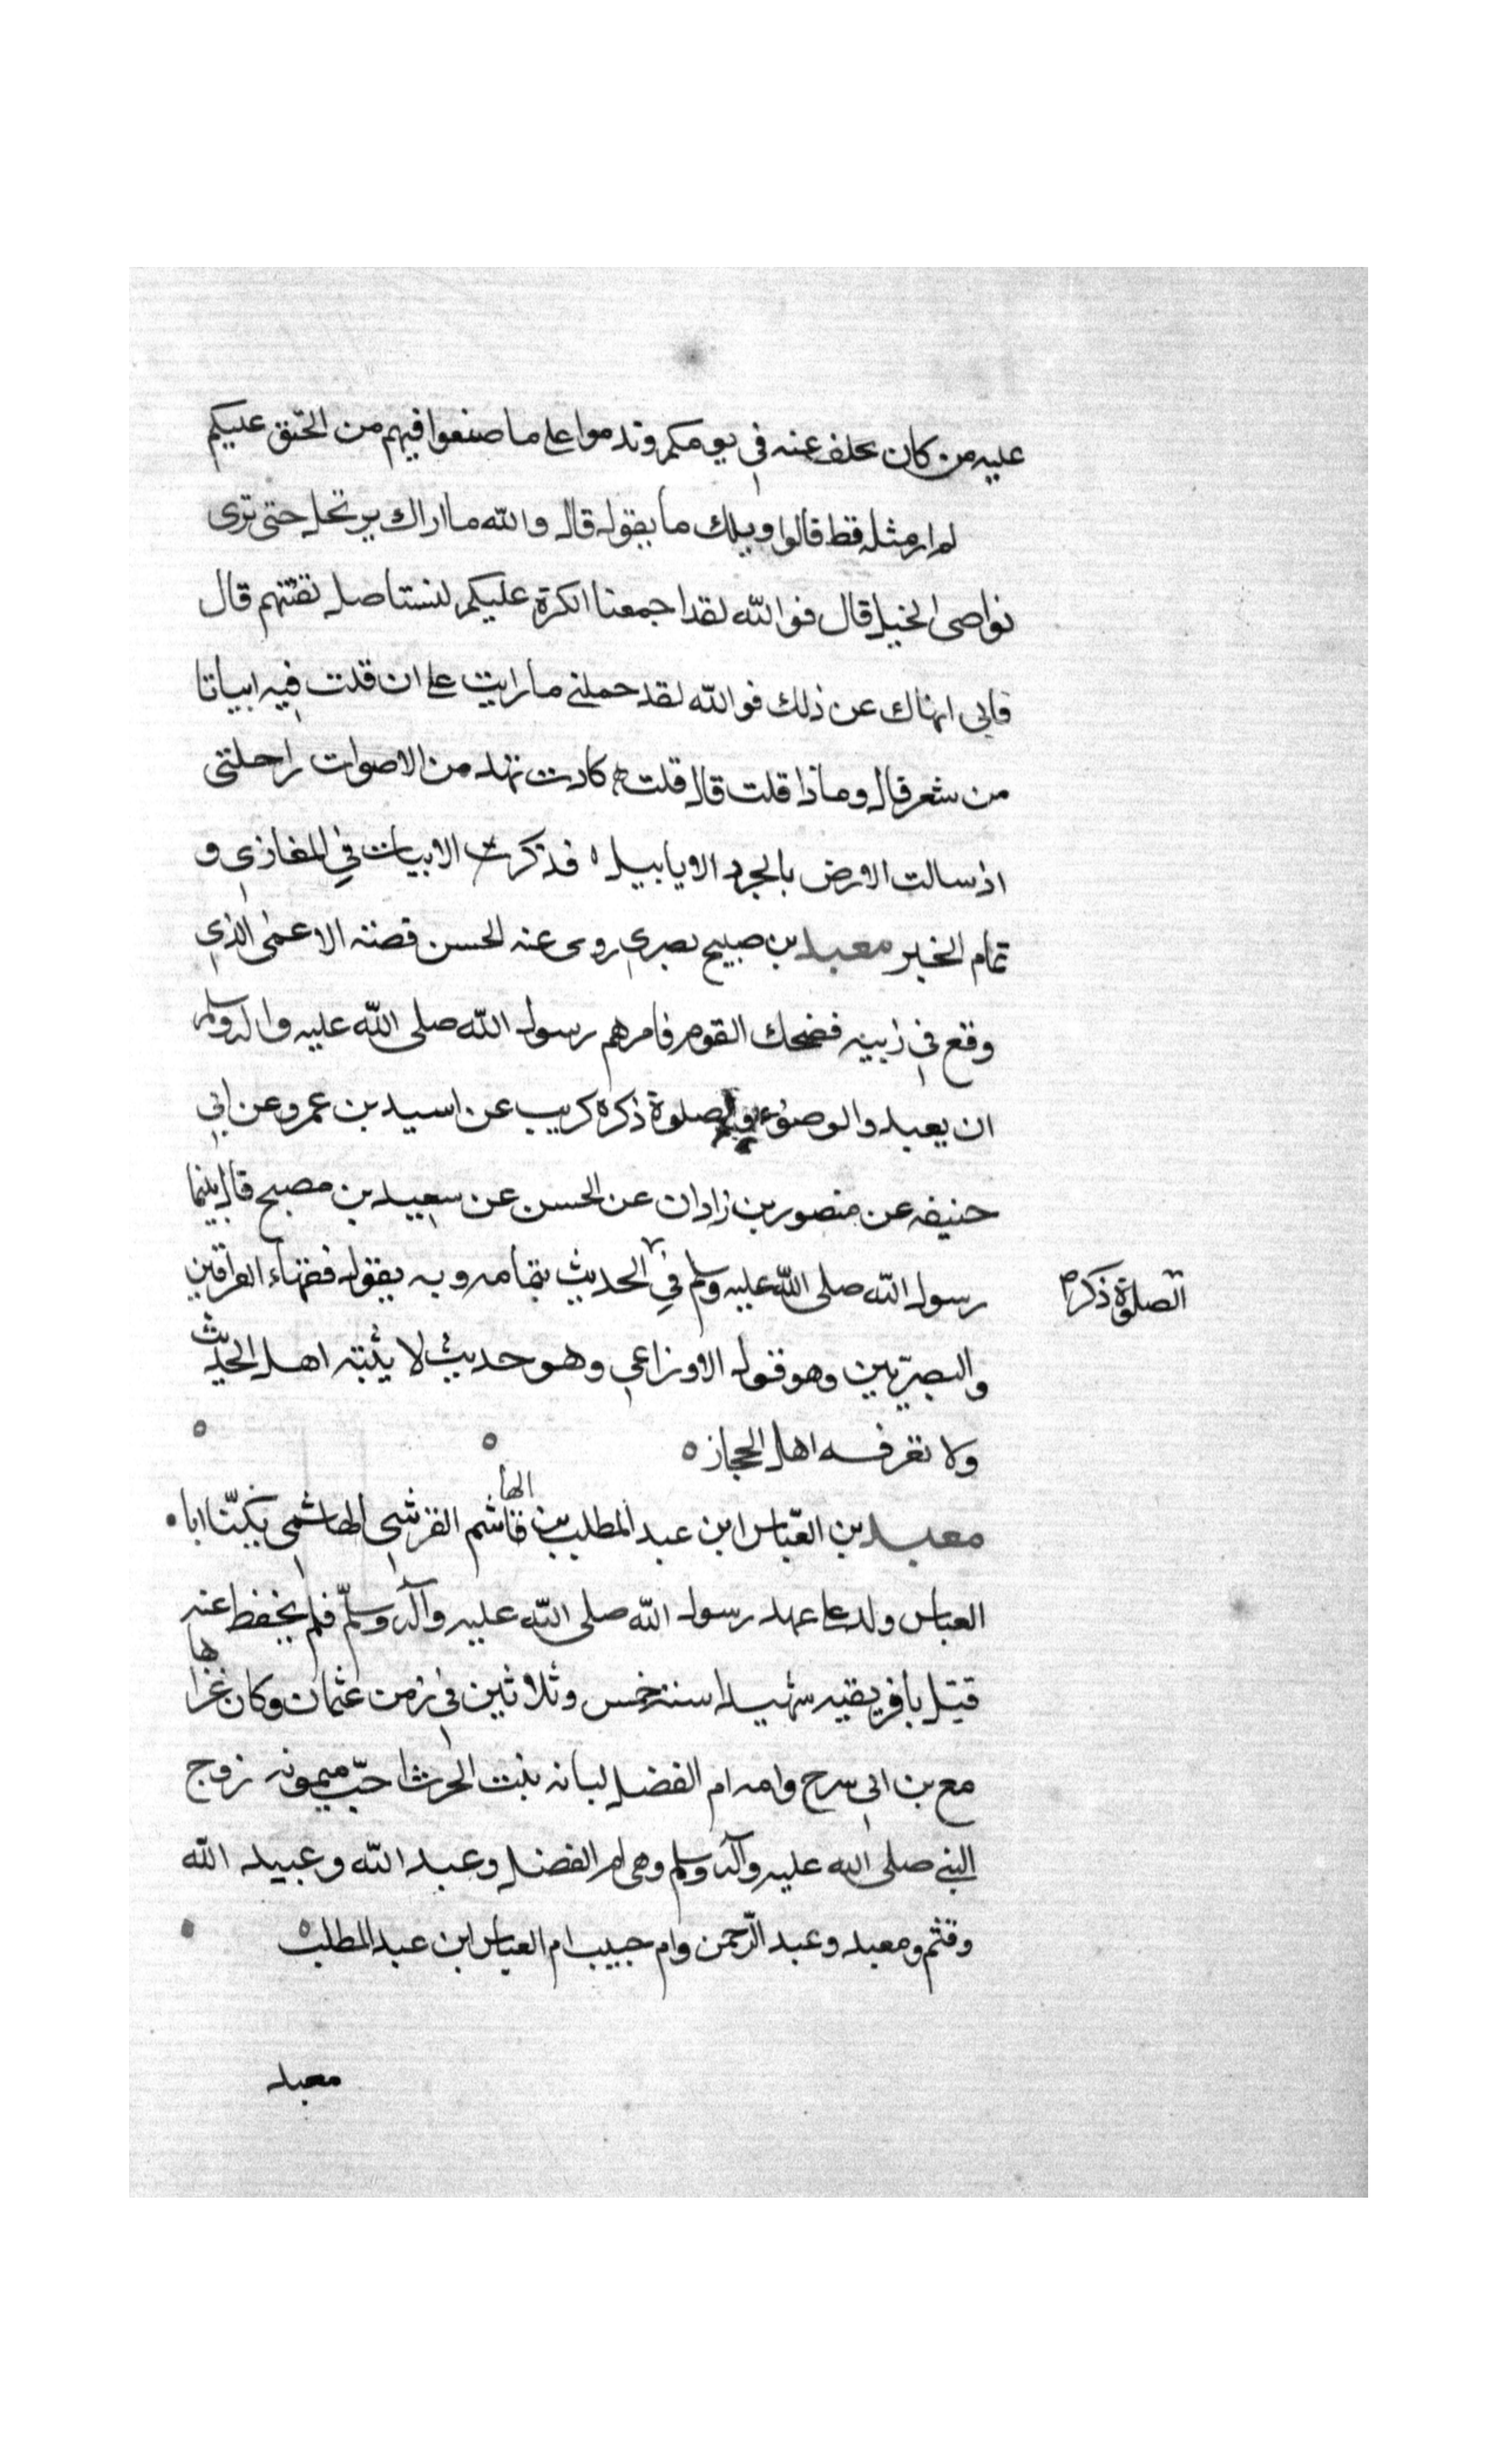 عليه من كان تخلف عنه في يومكم وندموا على ما صنعوا فيهم من الحنق عليكم
لم ار مثله قط قالوا ويلك ما يقول قال والله ما اراك يرتحل حتى ترى
نواصى الخيل قال فوالله لقد اجمعنا الكرة عليكم لنستاصل بقيتهم قال
فانى انهاك عن ذلك فوالله لقد حملني ما رايت على ان قلت فيه ابياتا
من شعر قال وماذا قلت قال قلت كادت تهد من الاصوات راحلتى
اذ سالت الارض بالجرد الابابيل فذكرت الابيات في المغازي و
تمام الخبر معبد بن صبيح بصري روى عنه الحسن قصته الاعمى الذي
وقع في زبيه فضحك القوم فامرهم رسول الله صلى الله عليه واله وسلم
ان يعيدوا الوضوء والصلوة ذكره كريب عن اسيد بن عمرو عن ابي
حنيفه عن منصور بن زادان عن الحسن عن سعيد بن مصبح قال بينما
رسول الله صلى الله عليه وسلم في الحديث بتمامه وبه يقول فقهاء العراقين
الصلوة ذكره
والبصريين وهو قول الاوزاعي وهو حديث لا يثبته اهل الحديث
ولا تعرفه اهل الحجاز
معبد بن العباس ابن عبد المطلب بن هاشم القرشي الهاشمي يكنّا ابا
العباس ولد على عهد رسول الله صلى الله عليه وآله وسلم فلم يحفظ عنه
قتل بافريقيه شهيدا سنة خمس وثلاثين في زمن عثمان وكان غزاها
مع بن ابي سرح وامه ام الفضل لبانه بنت الحرث اخت ميمونه زوج
النبي صلى الله عليه وآله وسلم وهي ام الفضل وعبد الله وعبيد الله
وقثم ومعبد وعبد الرحمن وام حبيب ام العباس ابن عبد المطلب
معبد